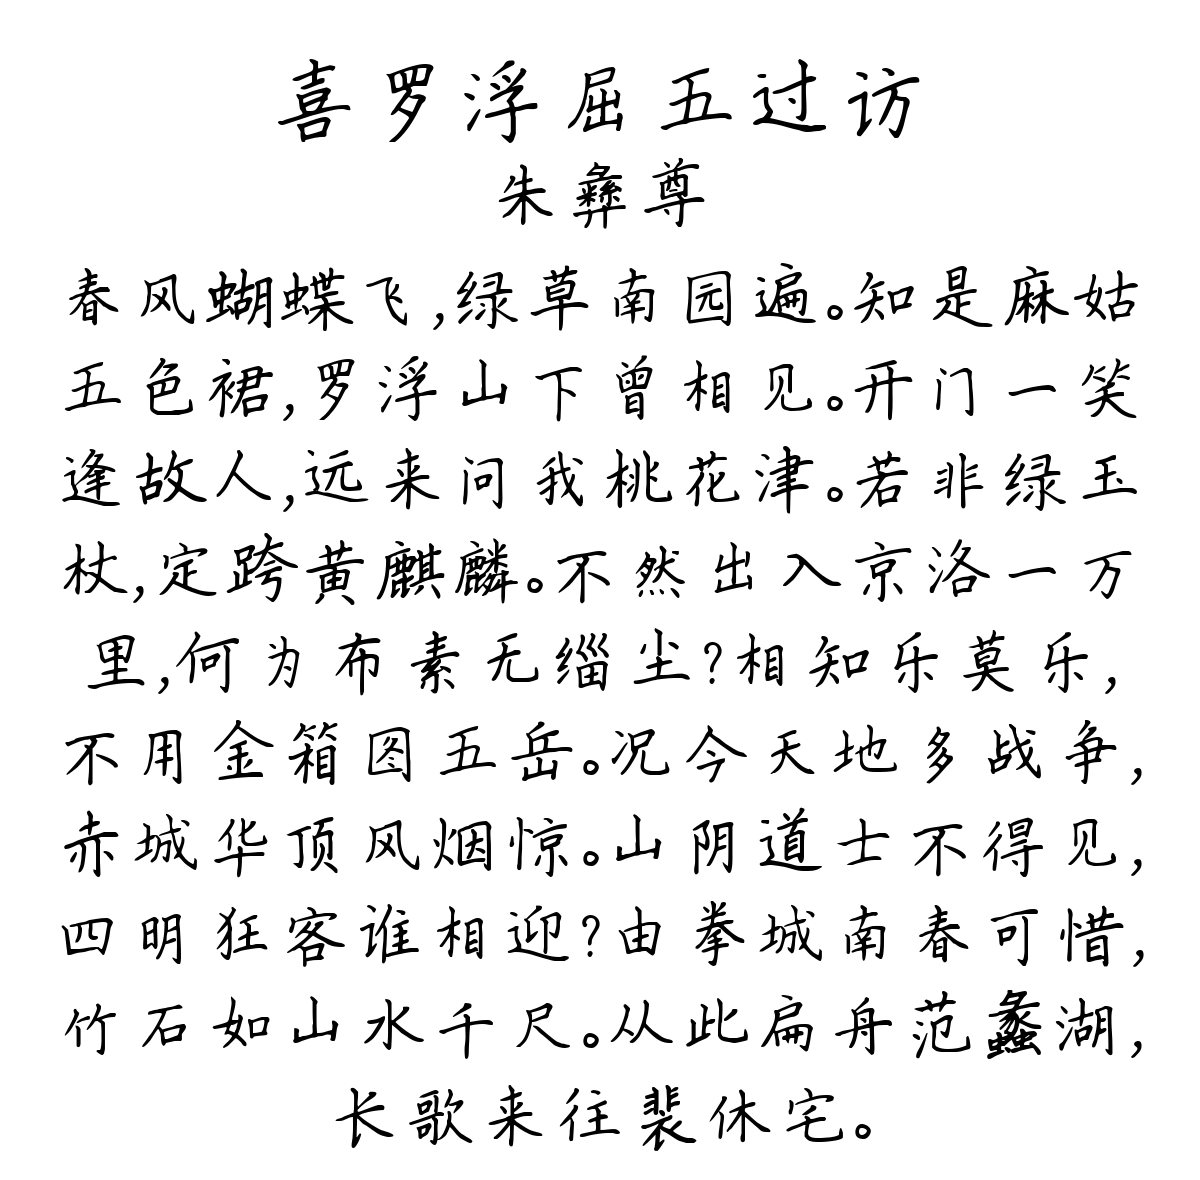 喜罗浮屈五过访
朱彝尊
春风蝴蝶飞,绿草南园遍。知是麻姑
五色裙,罗浮山下曾相见。开门一笑
逢故人,远来问我桃花津。若非绿玉
杖,定跨黄麒麟。不然出入京洛一万
里,何为布素无缁尘?相知乐莫乐,
不用金箱图五岳。况今天地多战争,
赤城华顶风烟惊。山阴道士不得见,
四明狂客谁相迎?由拳城南春可惜,
竹石如山水千尺。从此扁舟范蠡湖,
长歌来往裴休宅。